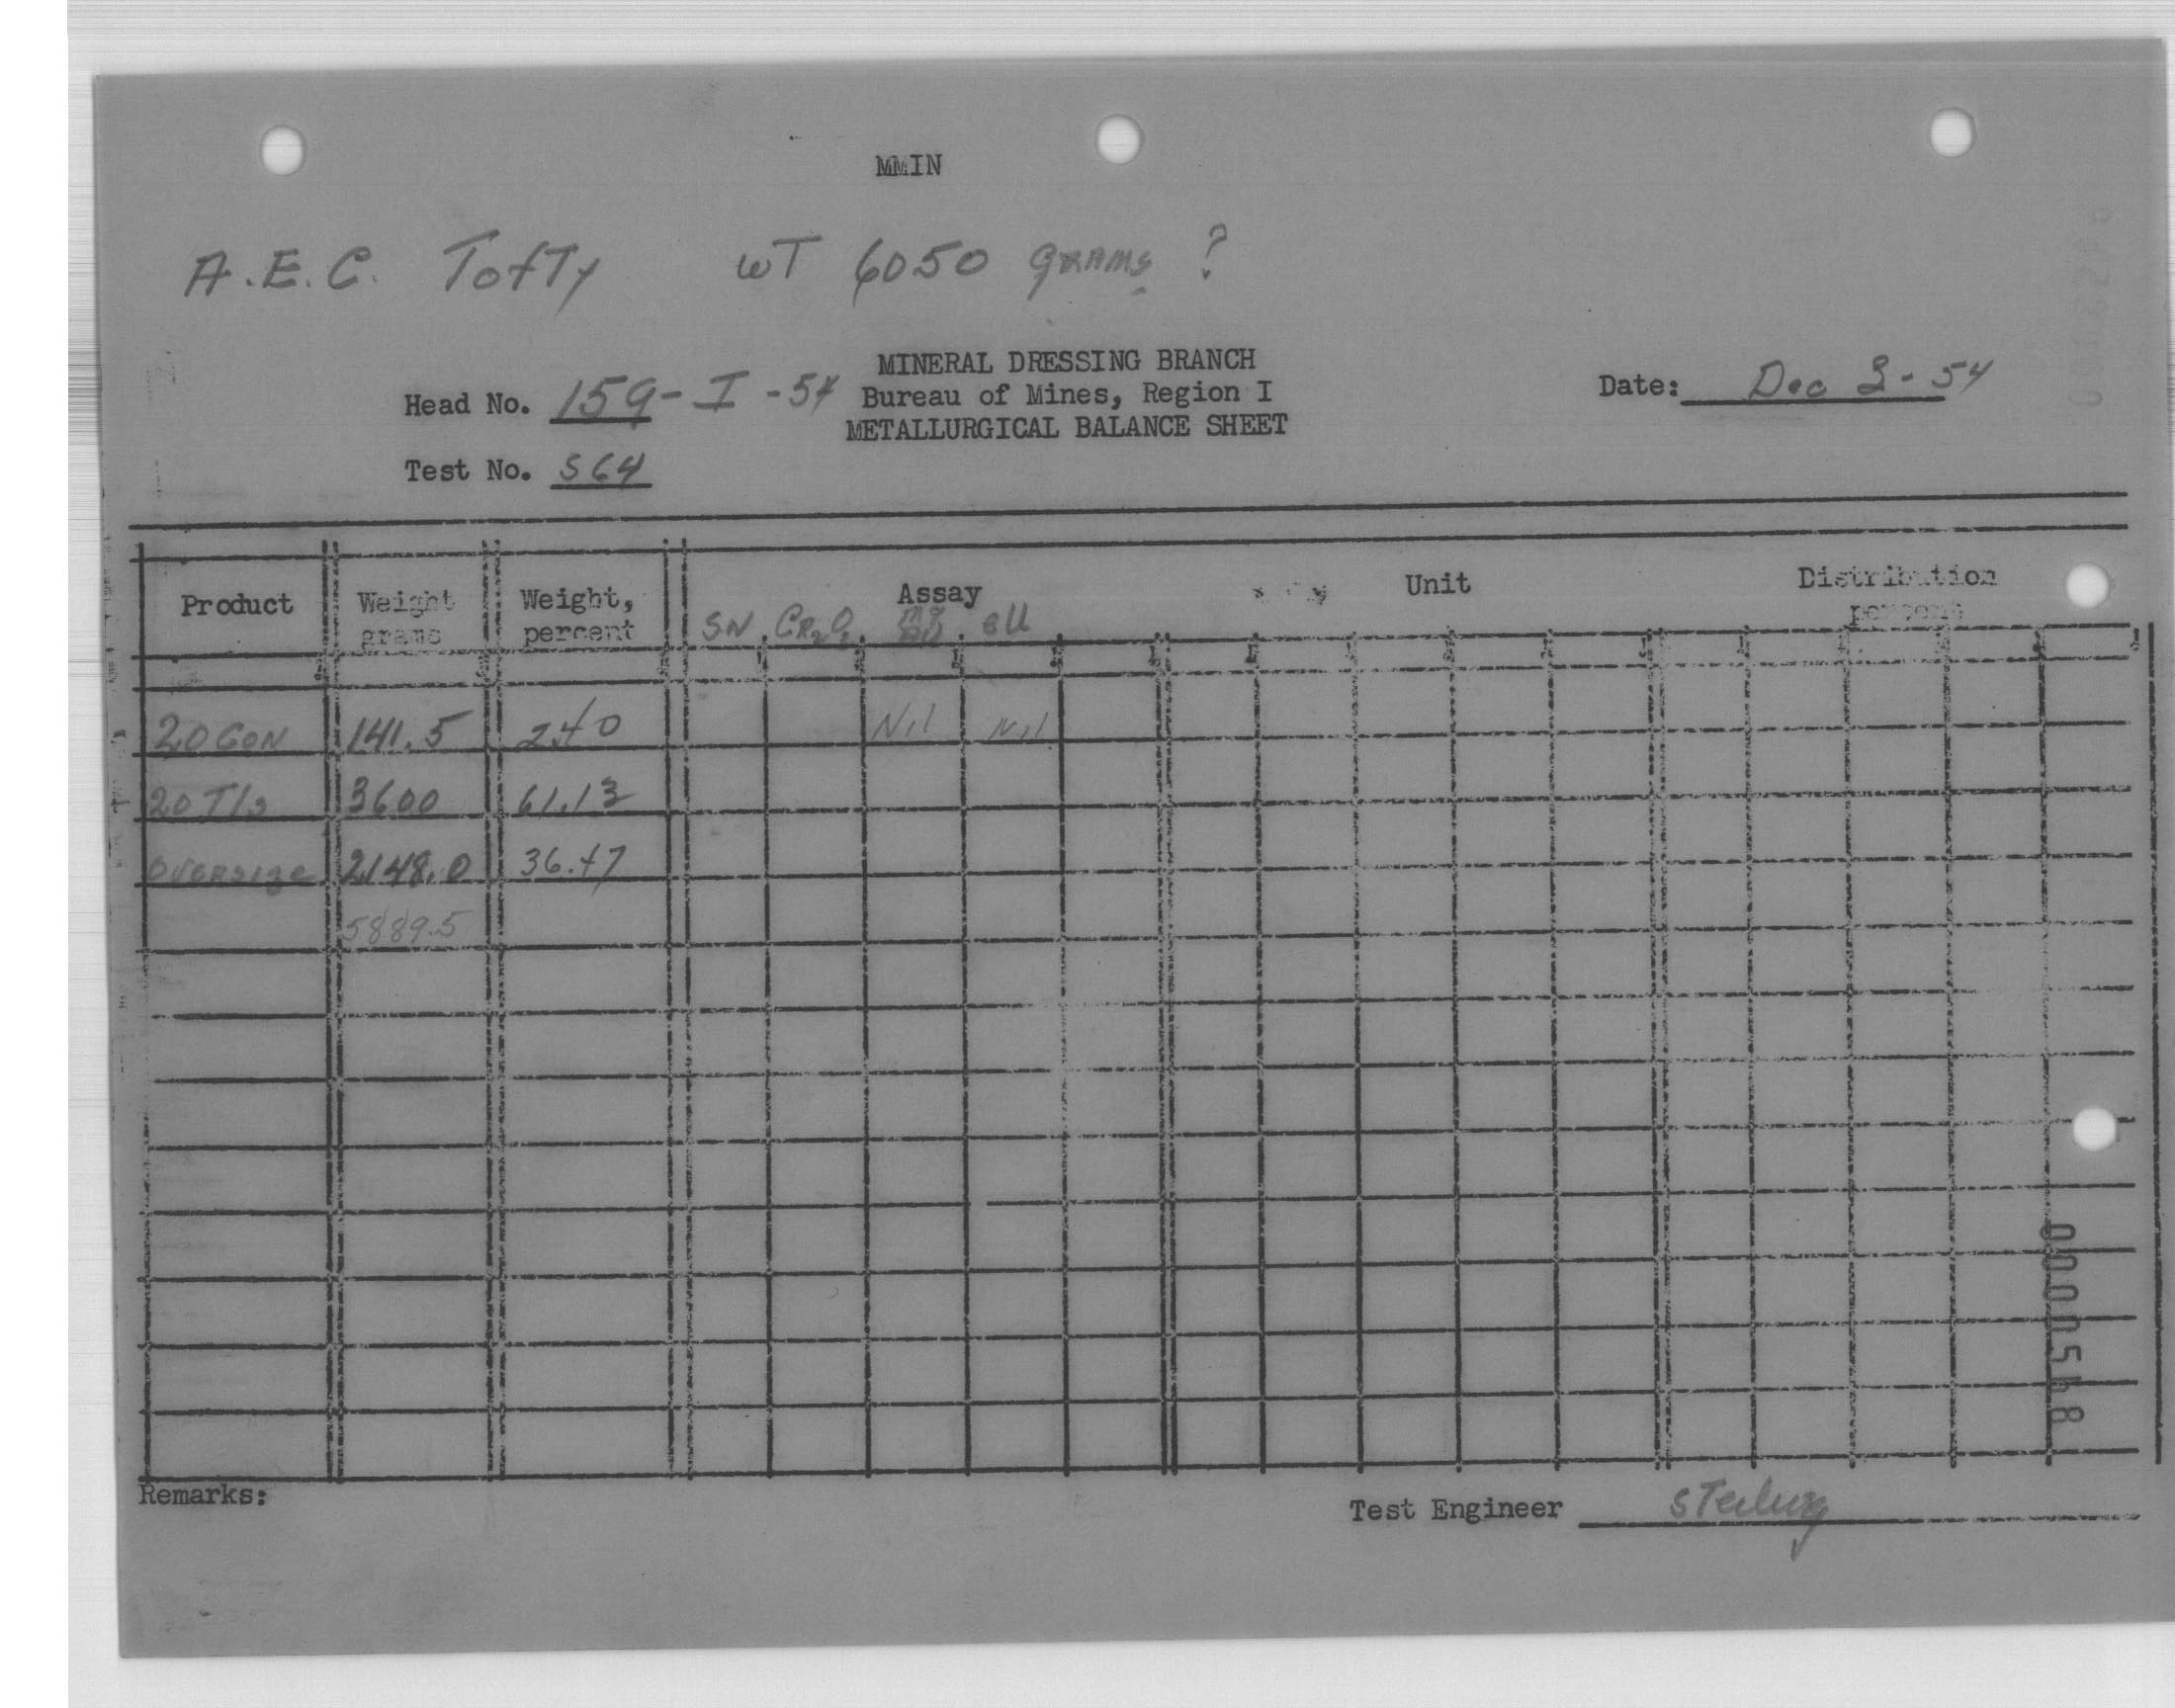 MMIN
A.E.C. Tofty wT 6050 grams ?
MINERAL DRESSING BRANCH
Head No. 159-I-54 Bureau of Mines, Region I Date: Dec 3-54
METALLURGICAL BALANCE SHEET
Test No. S64
Product Weight grams Weight, percent Assay Unit Distribution percent
SN Cr2O3 eU
20 CON 141.5 2.40 Nil Nil
20 Tls 3600 61.13
Oversize 2148.0 36.47
5889.5
0000568
Remarks:
Test Engineer Sterling